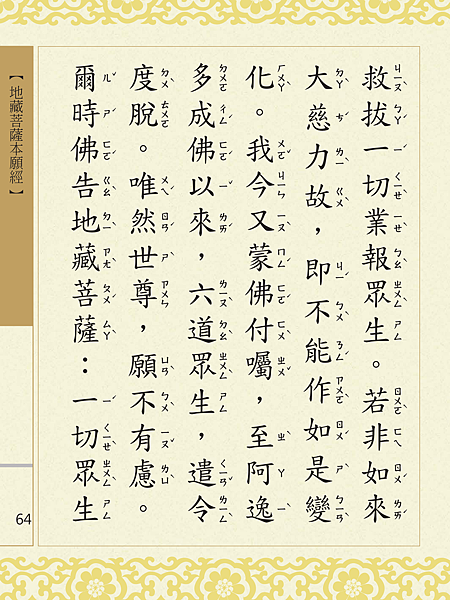 救拔一切業報眾生。若非如來
大慈力故，即不能作如是變
化。我今又蒙佛付囑，至阿逸
多成佛以來，六道眾生，遣令
度脫。唯然世尊，願不有慮。
爾時佛告地藏菩薩：一切眾生
【地藏菩薩本願經】
64